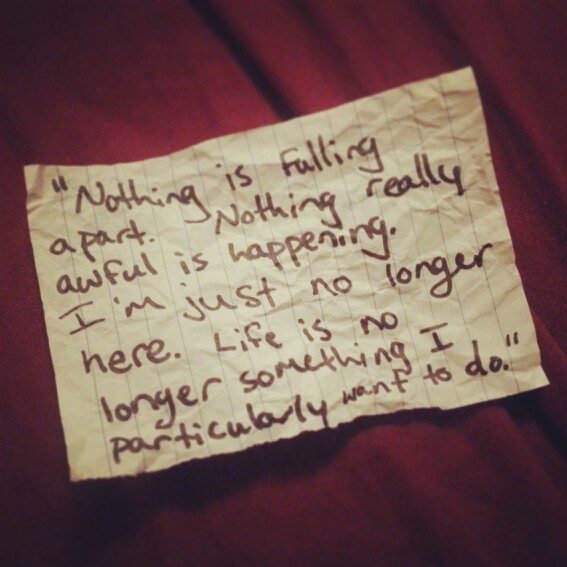 "Nothing is falling
apart. Nothing really
awful is happening.
I'm just no longer
here. Life is no
longer something I
particularly want to do."